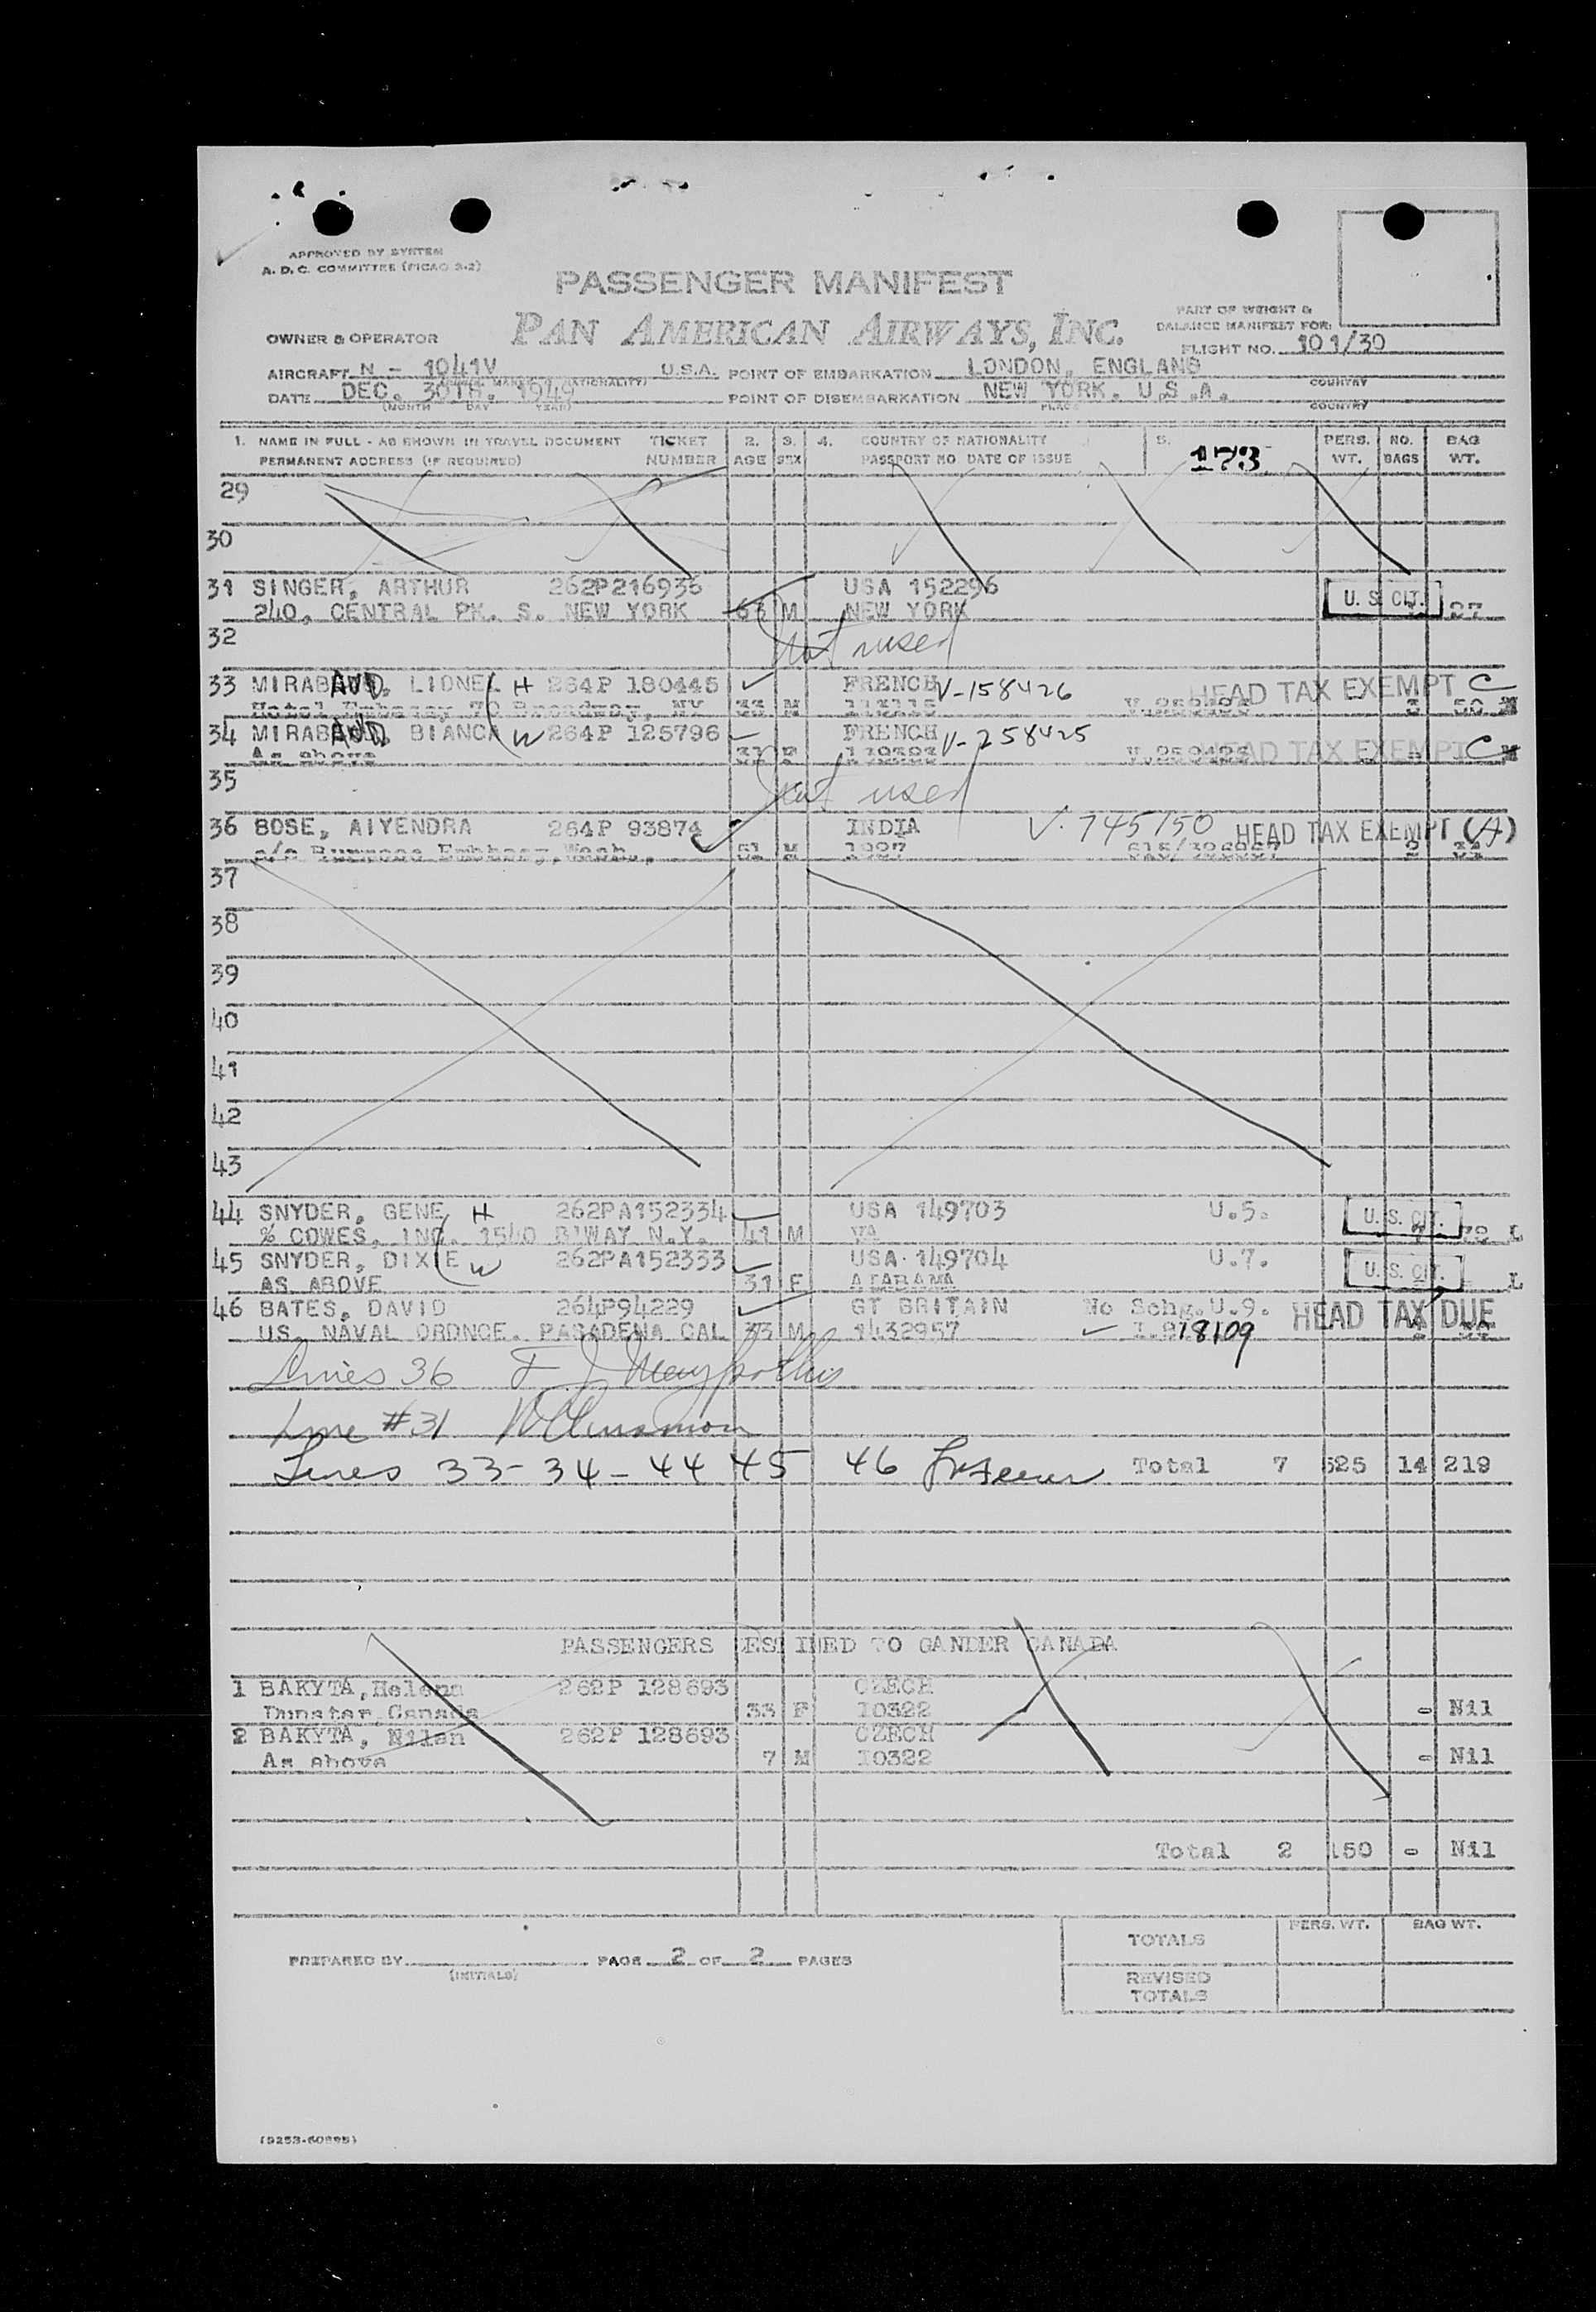 APPROVED BY SYSTEM
A. D. C. COMMITTEE (PICAO 2-2)
PASSENGER MANIFEST
PART OF WEIGHT &
BALANCE MANIFEST FOR:
OWNER & OPERATOR PAN AMERICAN AIRWAYS, INC. FLIGHT NO. 101/30
AIRCRAFT N - 1041V U.S.A. POINT OF EMBARKATION LONDON, ENGLAND
COUNTRY
DATE DEC. 30TH. 1949 POINT OF DISEMBARKATION NEW YORK. U.S.A.
(MONTH DAY YEAR) PLACE COUNTRY
1. NAME IN FULL - AS SHOWN IN TRAVEL DOCUMENT TICKET 2. 3. 4. COUNTRY OF NATIONALITY 5. 173 PERS. NO. BAG
PERMANENT ADDRESS (IF REQUIRED) NUMBER AGE SEX PASSPORT NO DATE OF ISSUE WT. BAGS WT.
29
30
31 SINGER, ARTHUR 262P216936 USA 152296
240, CENTRAL PK. S. NEW YORK 63 M NEW YORK U. S. CIT. 27
32 Not used
33 MIRABAUD, LIONEL H 264P 180445 FRENCH V-158426 HEAD TAX EXEMPT C
Hotel Embassy 70 Broadway, NY 33 M 3 50
34 MIRABAUD BIANCA W 264P 125796 FRENCH V-258425
As above 31 F HEAD TAX EXEMPT C
35 Not used
36 BOSE, AIYENDRA 264P 93874 INDIA V. 745150 HEAD TAX EXEMPT (A)
c/o Burmese Embassy, Wash., 51 M 1927 2 31
37
38
39
40
41
42
43
44 SNYDER, GENE H 262PA152334 USA 149703 U.5. U. S. CIT.
% COWES, INC. 1540 B'WAY N.Y. 41 M VA L
45 SNYDER, DIXIE W 262PA152333 USA 149704 U.7. U. S. CIT.
AS ABOVE 31 F ALABAMA L
46 BATES, DAVID 264P94229 GT BRITAIN No Schg. U.9. HEAD TAX DUE
US. NAVAL ORDNCE. PASADENA CAL 33 M 1432957 18109
Lines 36
Line #31
Lines 33- 34- 44 45 46 Total 7 525 14 219
PASSENGERS DESTINED TO GANDER CANADA
1 BAKYTA, Helena 262P 128693 CZECH
Dunster, Canada 33 F I0322 - Nil
2 BAKYTA, Milan 262P 128693 CZECH
As above 7 M I0322 - Nil
Total 2 150 - Nil
PERS. WT. BAG WT.
TOTALS
PREPARED BY PAGE 2 OF 2 PAGES
(INITIALS)
REVISED
TOTALS